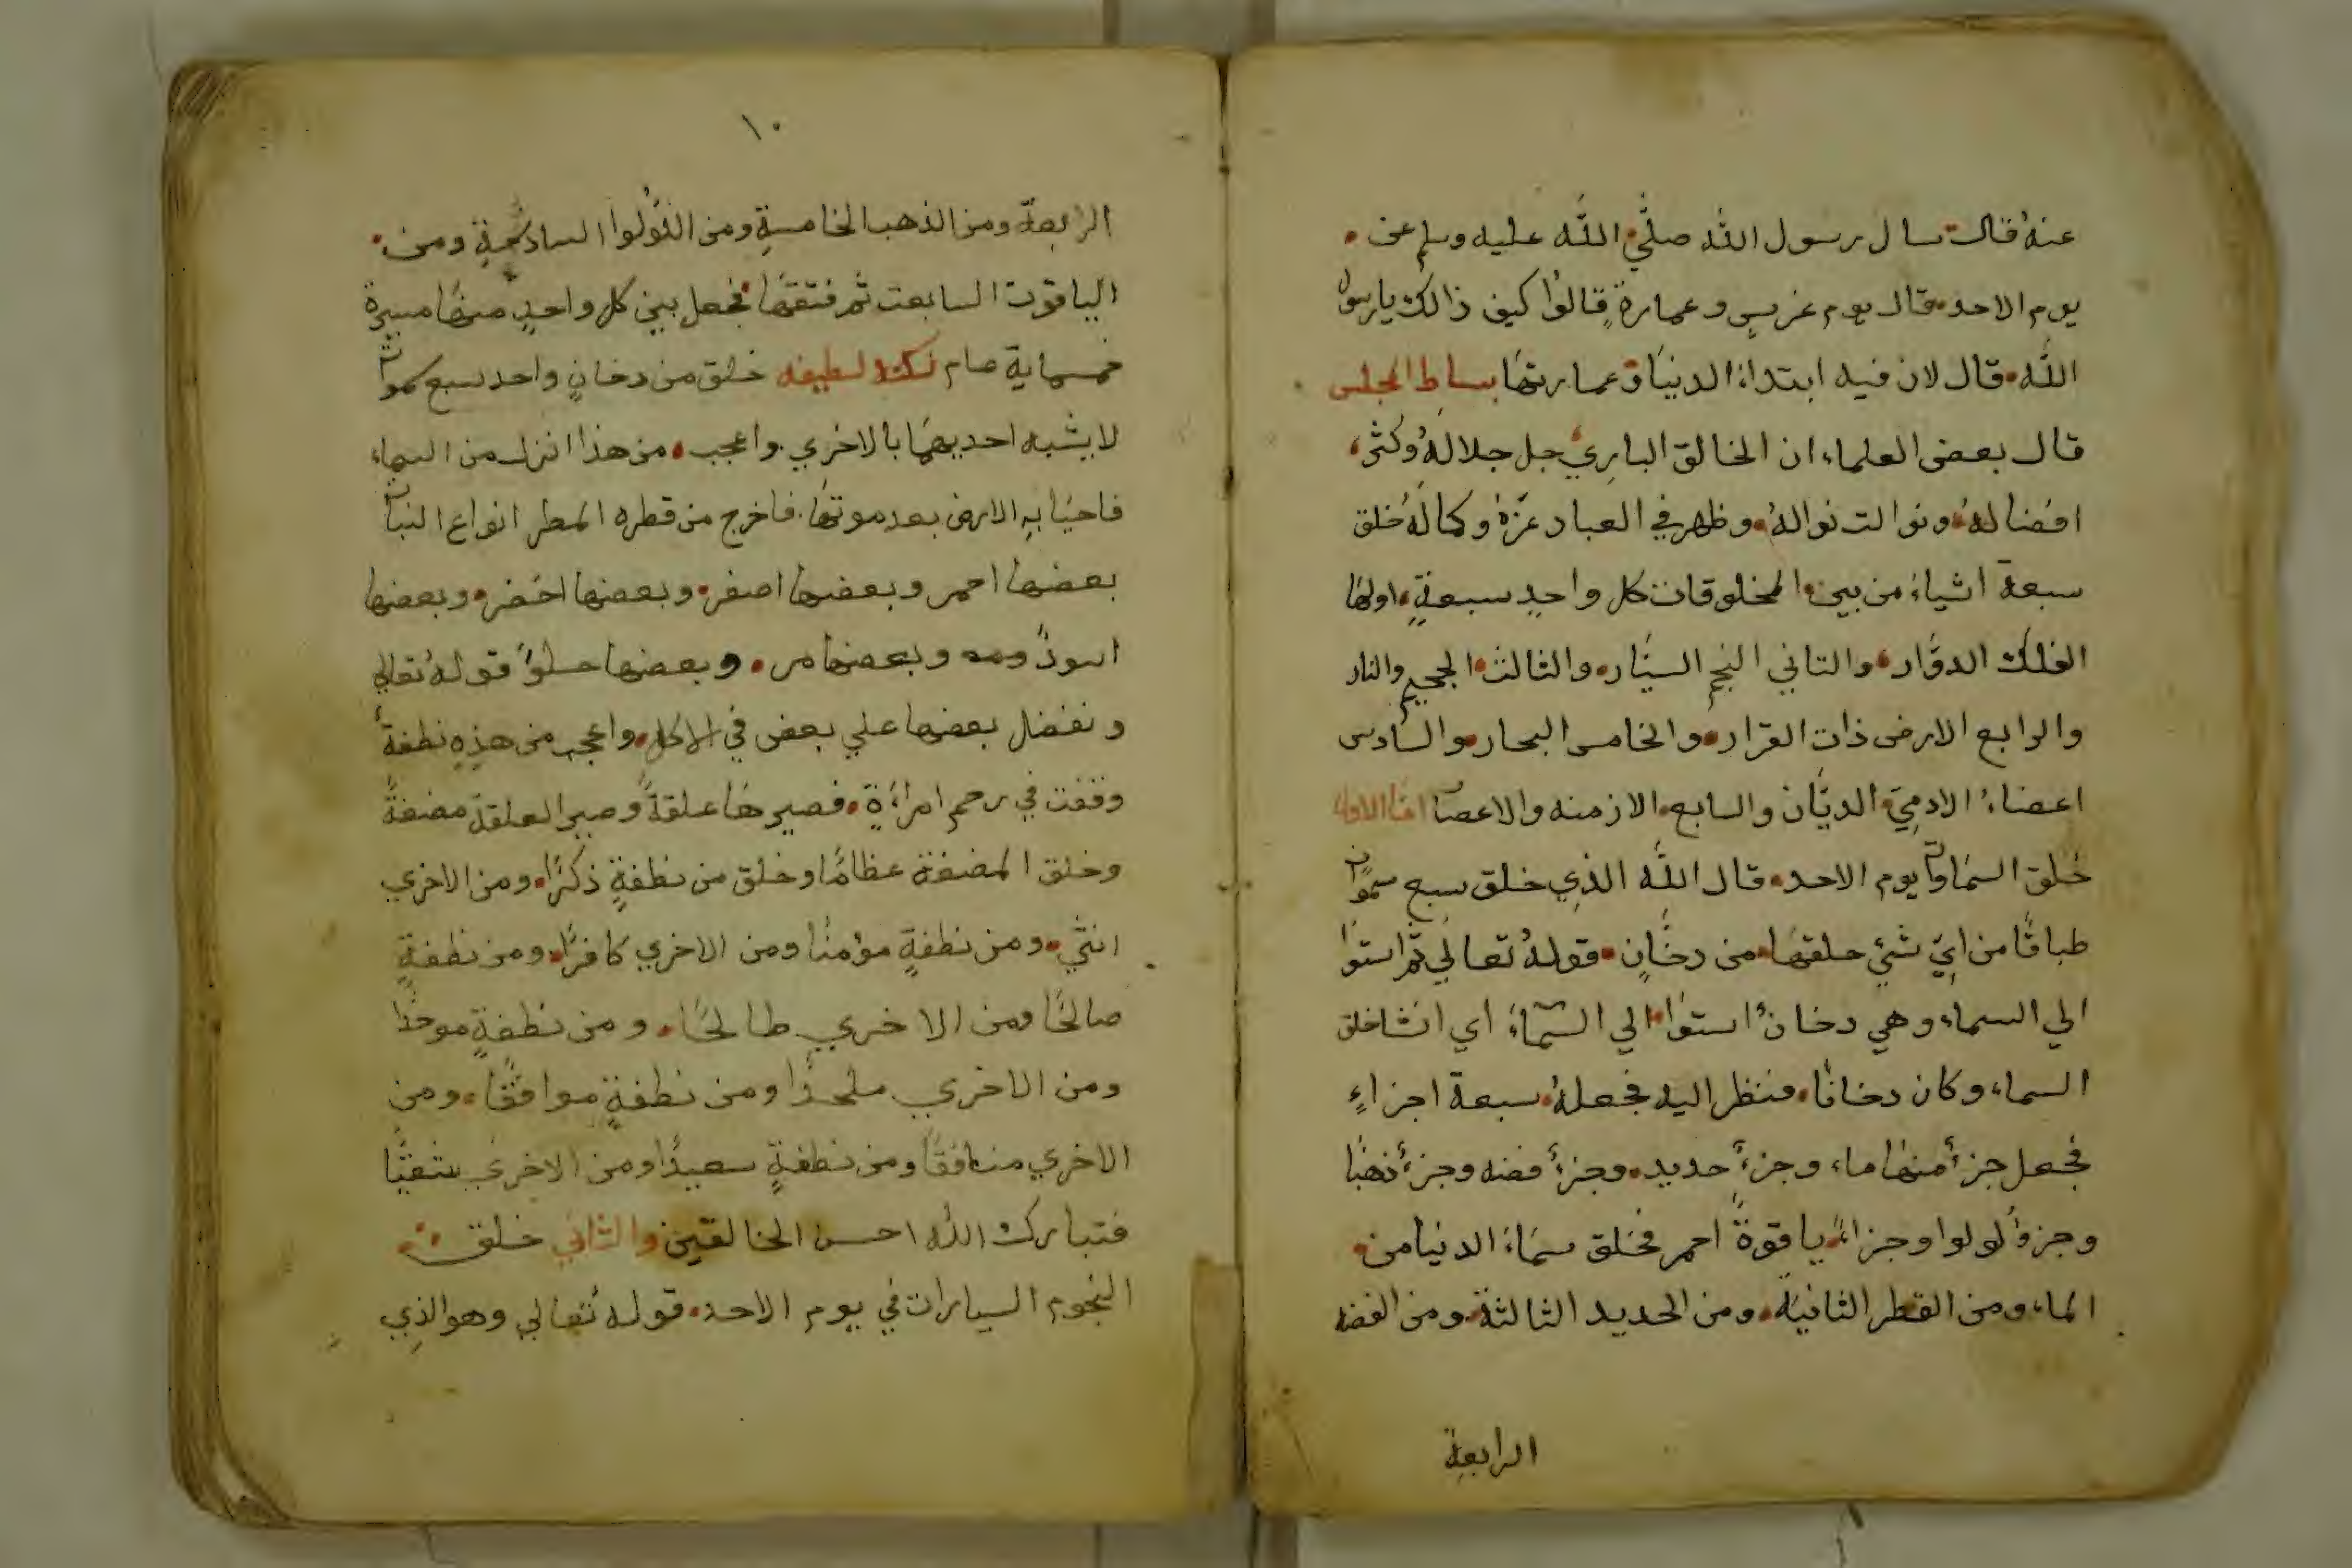 عنهُ قال سال رسول الله صلَّي الله عليه وسلم عن
يوم الاحد قال يوم غرسٍ وعمارةٍ قالوُا كيف ذالك يارسول
الله قال لان فيه ابتداء الدنيَا وعمارتهَا بساط المجلس
قال بعض العلماء ان الخالق الباري جل جلالهُ وكثر
افضالهُ ونوالت نوالهُ وظهر في العباد عزّهُ وكمالهُ خلق
سبعة اشياءَ من بين المخلوقات كل واحدٍ سبعةٍ اولهَا
الفلك الدوَّار والتاني النجم السيَّار والثالث الجحيم والنار
والرابع الارض ذات القرار والخامس البحار والسادس
اعضاءُ الادميّ الديَّان والسابع الازمنه والاعصار امَا الاول
خلق السمَاوات يوم الاحد قال الله الذِي خلق سبع سموات
طباقًا من ايِّ شيْ حلقهَا من دخَّانٍ قولهُ تعالي ثمَّ استوا
الي السماء وهي دخانٌ استوا الي السَّمآءِ اي انشا خلق
السماء وكان دخانًا فنظر اليه فجعلهُ سبعة اجزاءٍ
فجعل جزءً منهَا ماء وجزءً حديد وجزءً فضه وجزءً ذهبًا
وجزءً لولوا وجزاءً ياقوةً احمر فخلق سمَاءَ الدنيَا من
الماء ومن القطر الثانيَة ومن الحديد الثالثة ومن الفضه
الرابعة
١٠
الرابعة ومن الذهب الخامسةِ ومن اللوُلوا السادسةِ ومن
الياقوت السابعت ثم فتقهَا فجعل بين كل واحدٍ منهَا مسيرة
خمسماية عام نكته لطيفه خلق من دخانٍ واحد سبع سموات
لا يشبه احديهمَا بالاخري واعجب من هذا انزل من السماء
فاحيَا بهِ الارض بعد موتهَا فاخرج من قطره المطر انواع النبات
بعضها احمر وبعضها اصفر وبعضها اخضر وبعضها
اسودٌ وبعضها مر وبعضها حلوٌ قولهُ تعالي
ونفضل بعضها علي بعض في الاكل واعجب من هذِهِ نطفةً
وقفت في رحم امراءَةٍ فصيرهَا علقةً وصير العلقة مضغةً
وخلق المضغة عظامًا وخلق من نطفةٍ ذكرًا ومن الاخري
انثي ومن نطفةٍ مؤمنًا ومن الاخري كافرًا ومن نطفةٍ
صالحًا ومن الاخري طالحًا ومن نطفةٍ موحدًا
ومن الاخري ملحدًا ومن نطفةٍ موافقًا ومن
الاخري منافقًا ومن نطفةٍ سعيدًا ومن الاخري شقيًّا
فتبارك الله احسن الخالقين والثاني خلق
النجوم السيارات في يوم الاحد قولهُ تعالي وهو الذِي